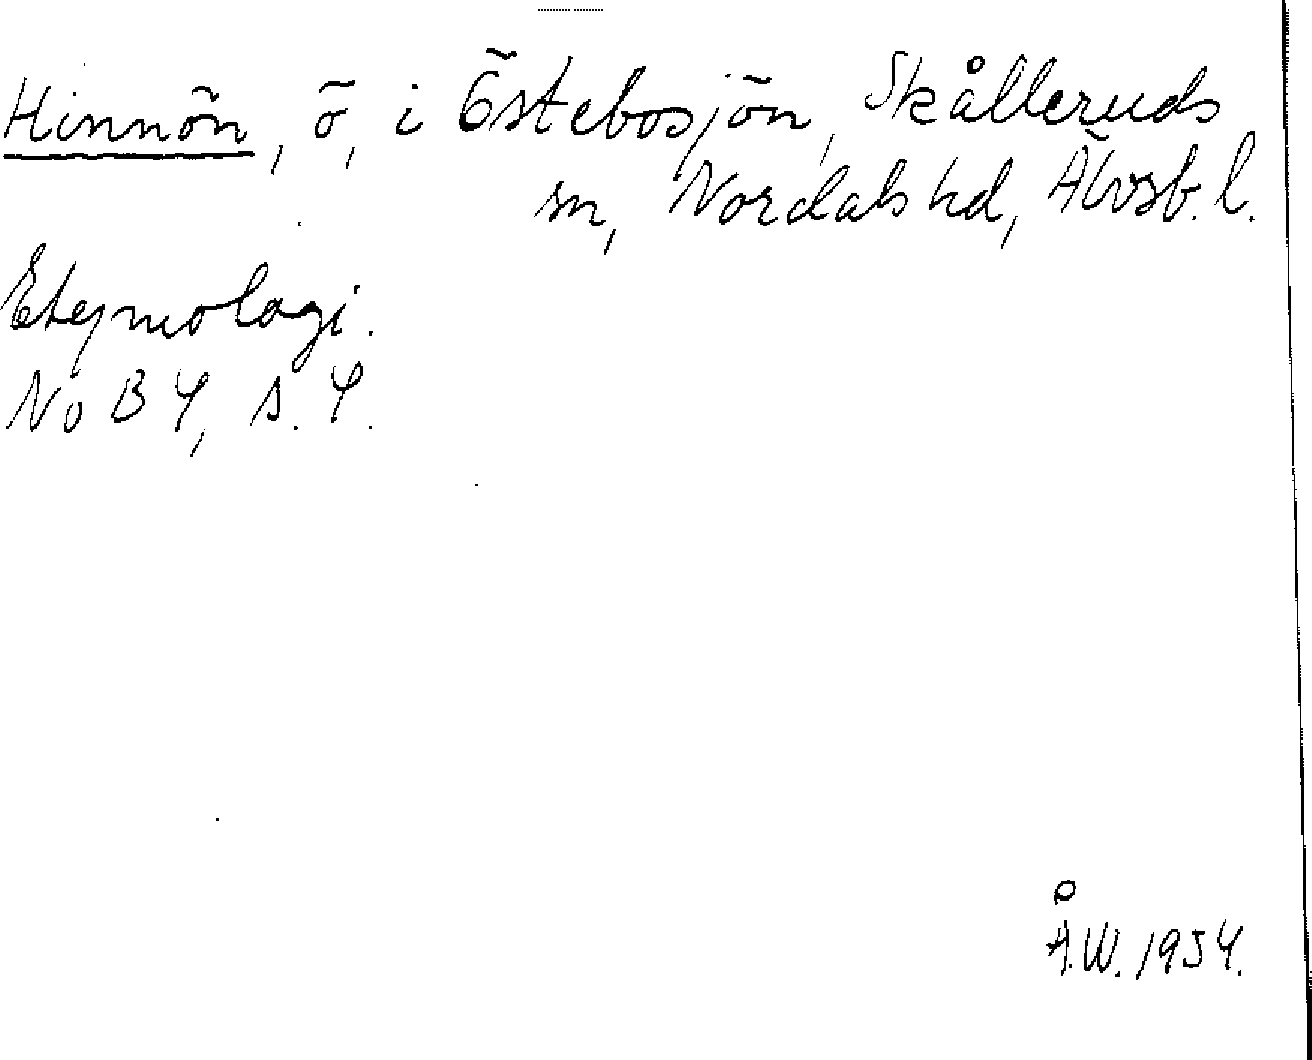 Hinnön, ö, i Östebosjön, Skålleruds
sn, Nordals hd, Älvsb. l.
Etymologi.
NoB 4, s. 4.
Å.W. 1954.